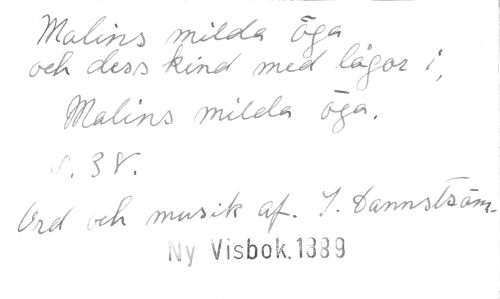 Malins milda öga
och dess kind med lågor i,
Malins milda öga.
s. 38.
Ord och musik af. I. Dannström.
Ny Visbok. 1889